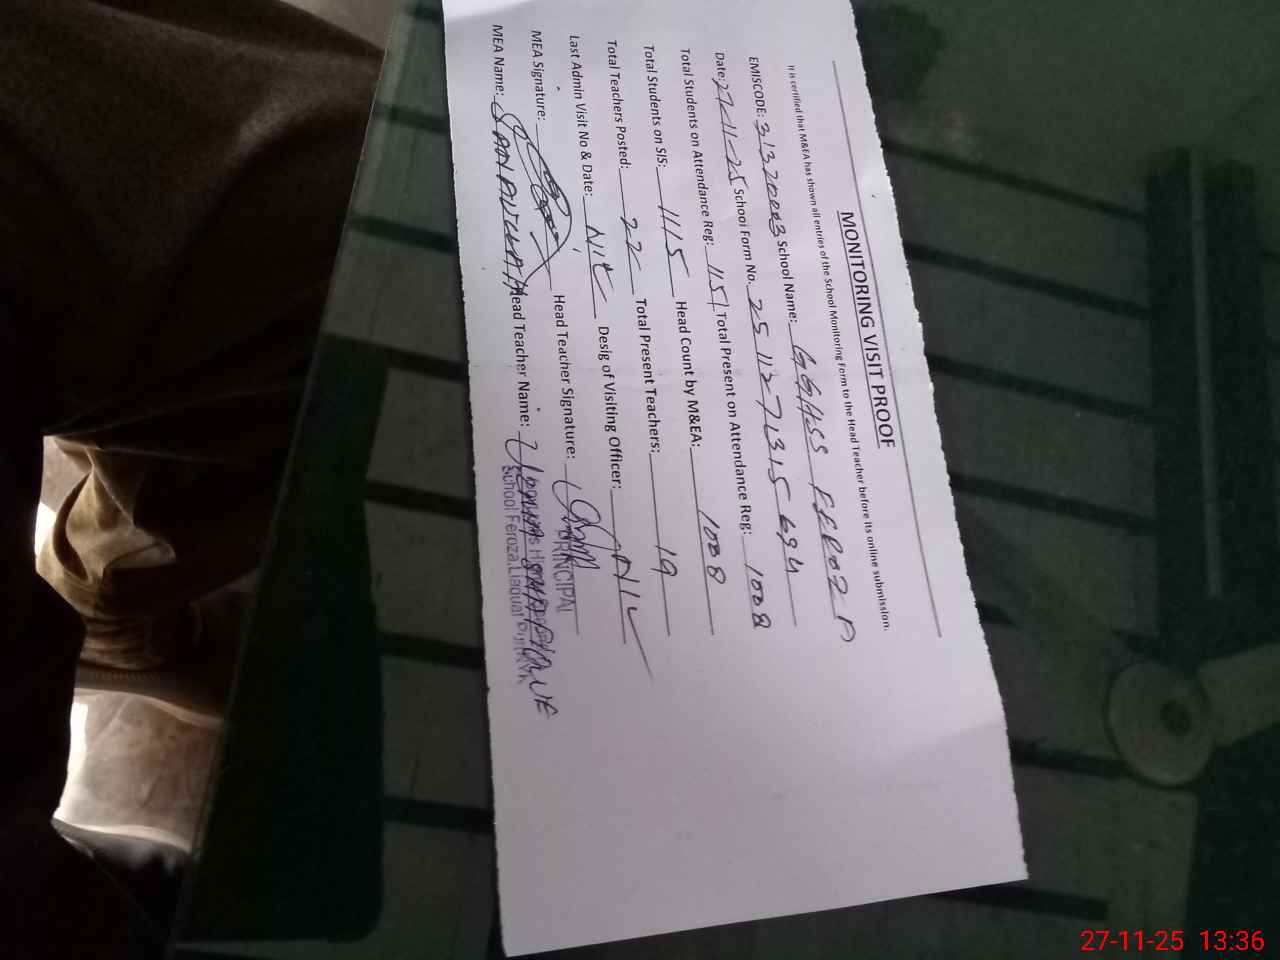 MONITORING VISIT PROOF
It is certified that M&EA has shown all entries of the School Monitoring Form to the Head Teacher before its online submission.
EMISCODE: 31320003 School Name: GGHSS FEROZA
Date: 27-11-25 School Form No. 2511271315694
Total Students on Attendance Reg: 1151 Total Present on Attendance Reg: 1008
Total Students on SIS: 1115 Head Count by M&EA: 1008
Total Teachers Posted: 22 Total Present Teachers: 19
Last Admin Visit No & Date: NIL Desig of Visiting Officer: NIL
MEA Signature: Head Teacher Signature:
PRINCIPAL
MEA Name: Head Teacher Name:
School Feroza, Liaquat Pur
27-11-25 13:36